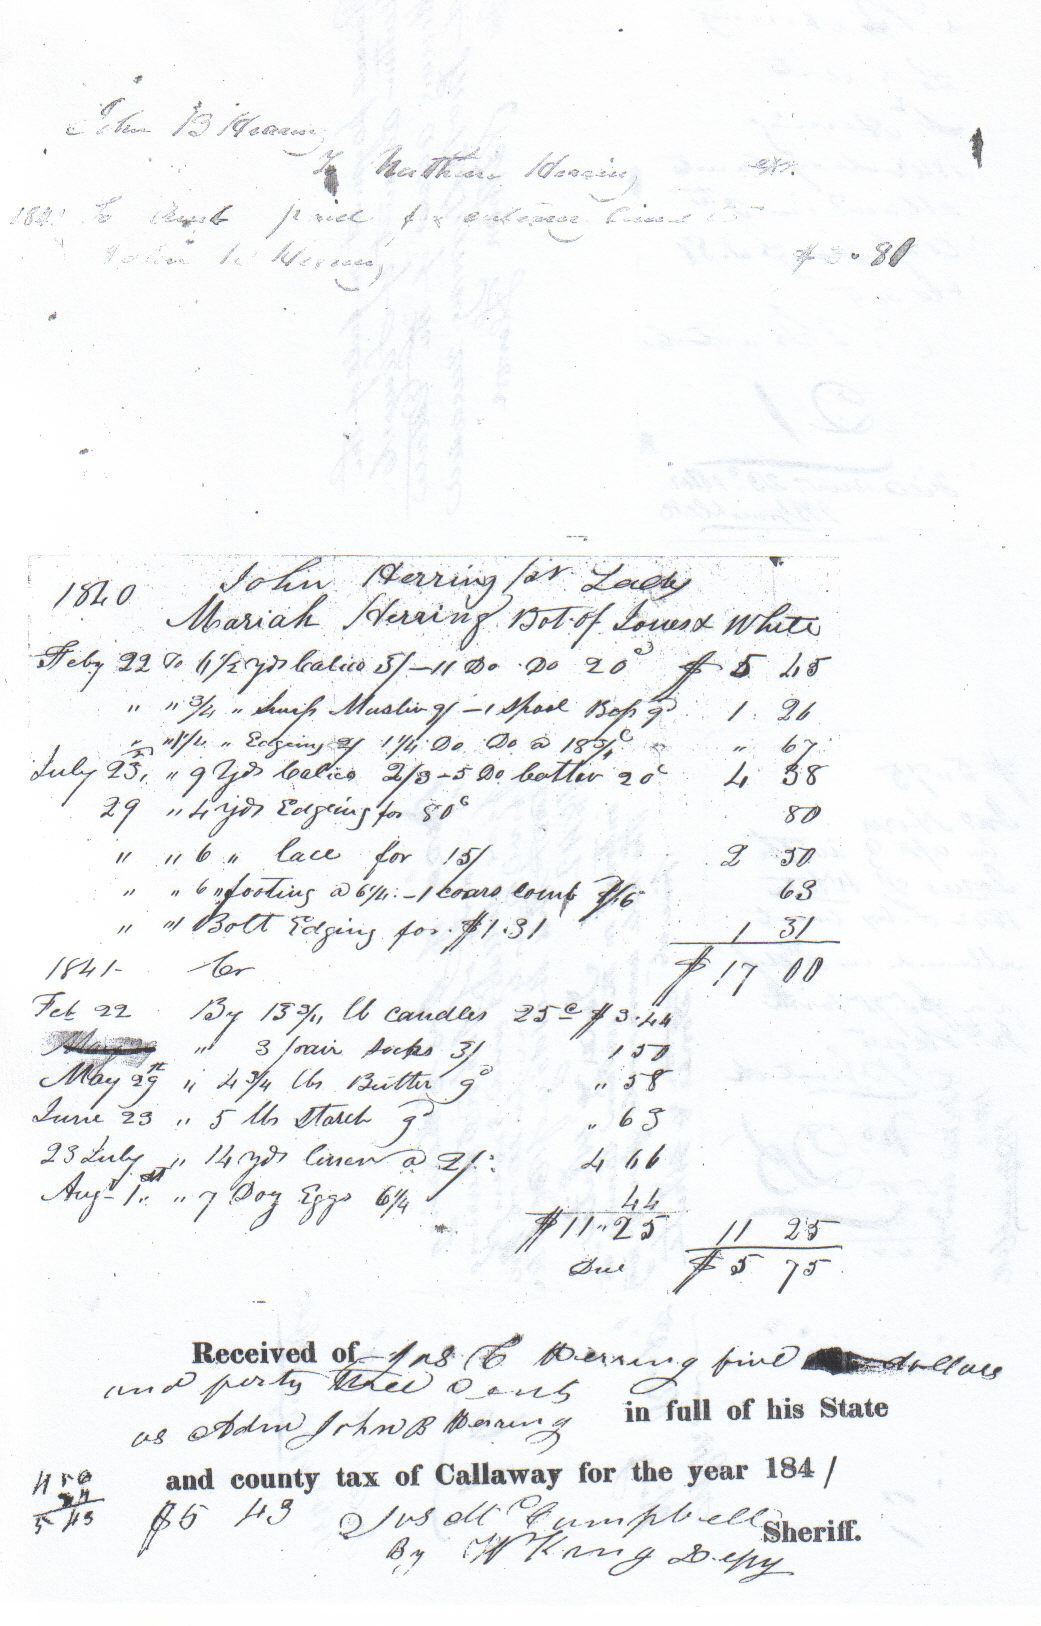 John B Herring
To Nathan Herring Dr.
184 To Amt paid for entering land
John B Herring $ 3.80
1840 John Herring for Lady
Mariah Herring Bot of Jones & White
Feby 22 To 11 1/2 yds Calico 3/ – 11 Do Do 20c $ 5 45
" " 3/4 " Swiss Muslin 9/ – 1 Spool 9d 1 26
" " 1 1/4 " Edging 2/ 1 1/4 Do Do @ 18 3/4c " " 67
July 23, " 9 yds Calico 2/3 – 5 Do Cotton 20c 4 38
29 " 4 yds Edging for 80c 80
" " 6 " lace for 15/ 2 50
" " 6 " footing @ 6 1/4 – 1 coars comb 63
" " 1 Bolt Edging for $1.31 1 31
1841 – Cr $ 17 00
Feb 22 By 13 3/4 lb candles 25c $ 3.44
" 3 pair socks 3/ 1 50
May 29th " 4 3/4 lbs Butter 9d " 58
June 23 " 5 lbs Starch 9d " 63
23 July " 14 yds linsen @ 2/: 4 66
Aug – 1st " 7 Doz Eggs 6 1/4 44
$ 11 " 25 11 25
Due $ 5 75
Received of Jas C Herring five dollars
and forty three Cents
in full of his State
as Adm John B Herring
and county tax of Callaway for the year 1841
$5 43 Jas McCampbell
Sheriff.
By W King Depy